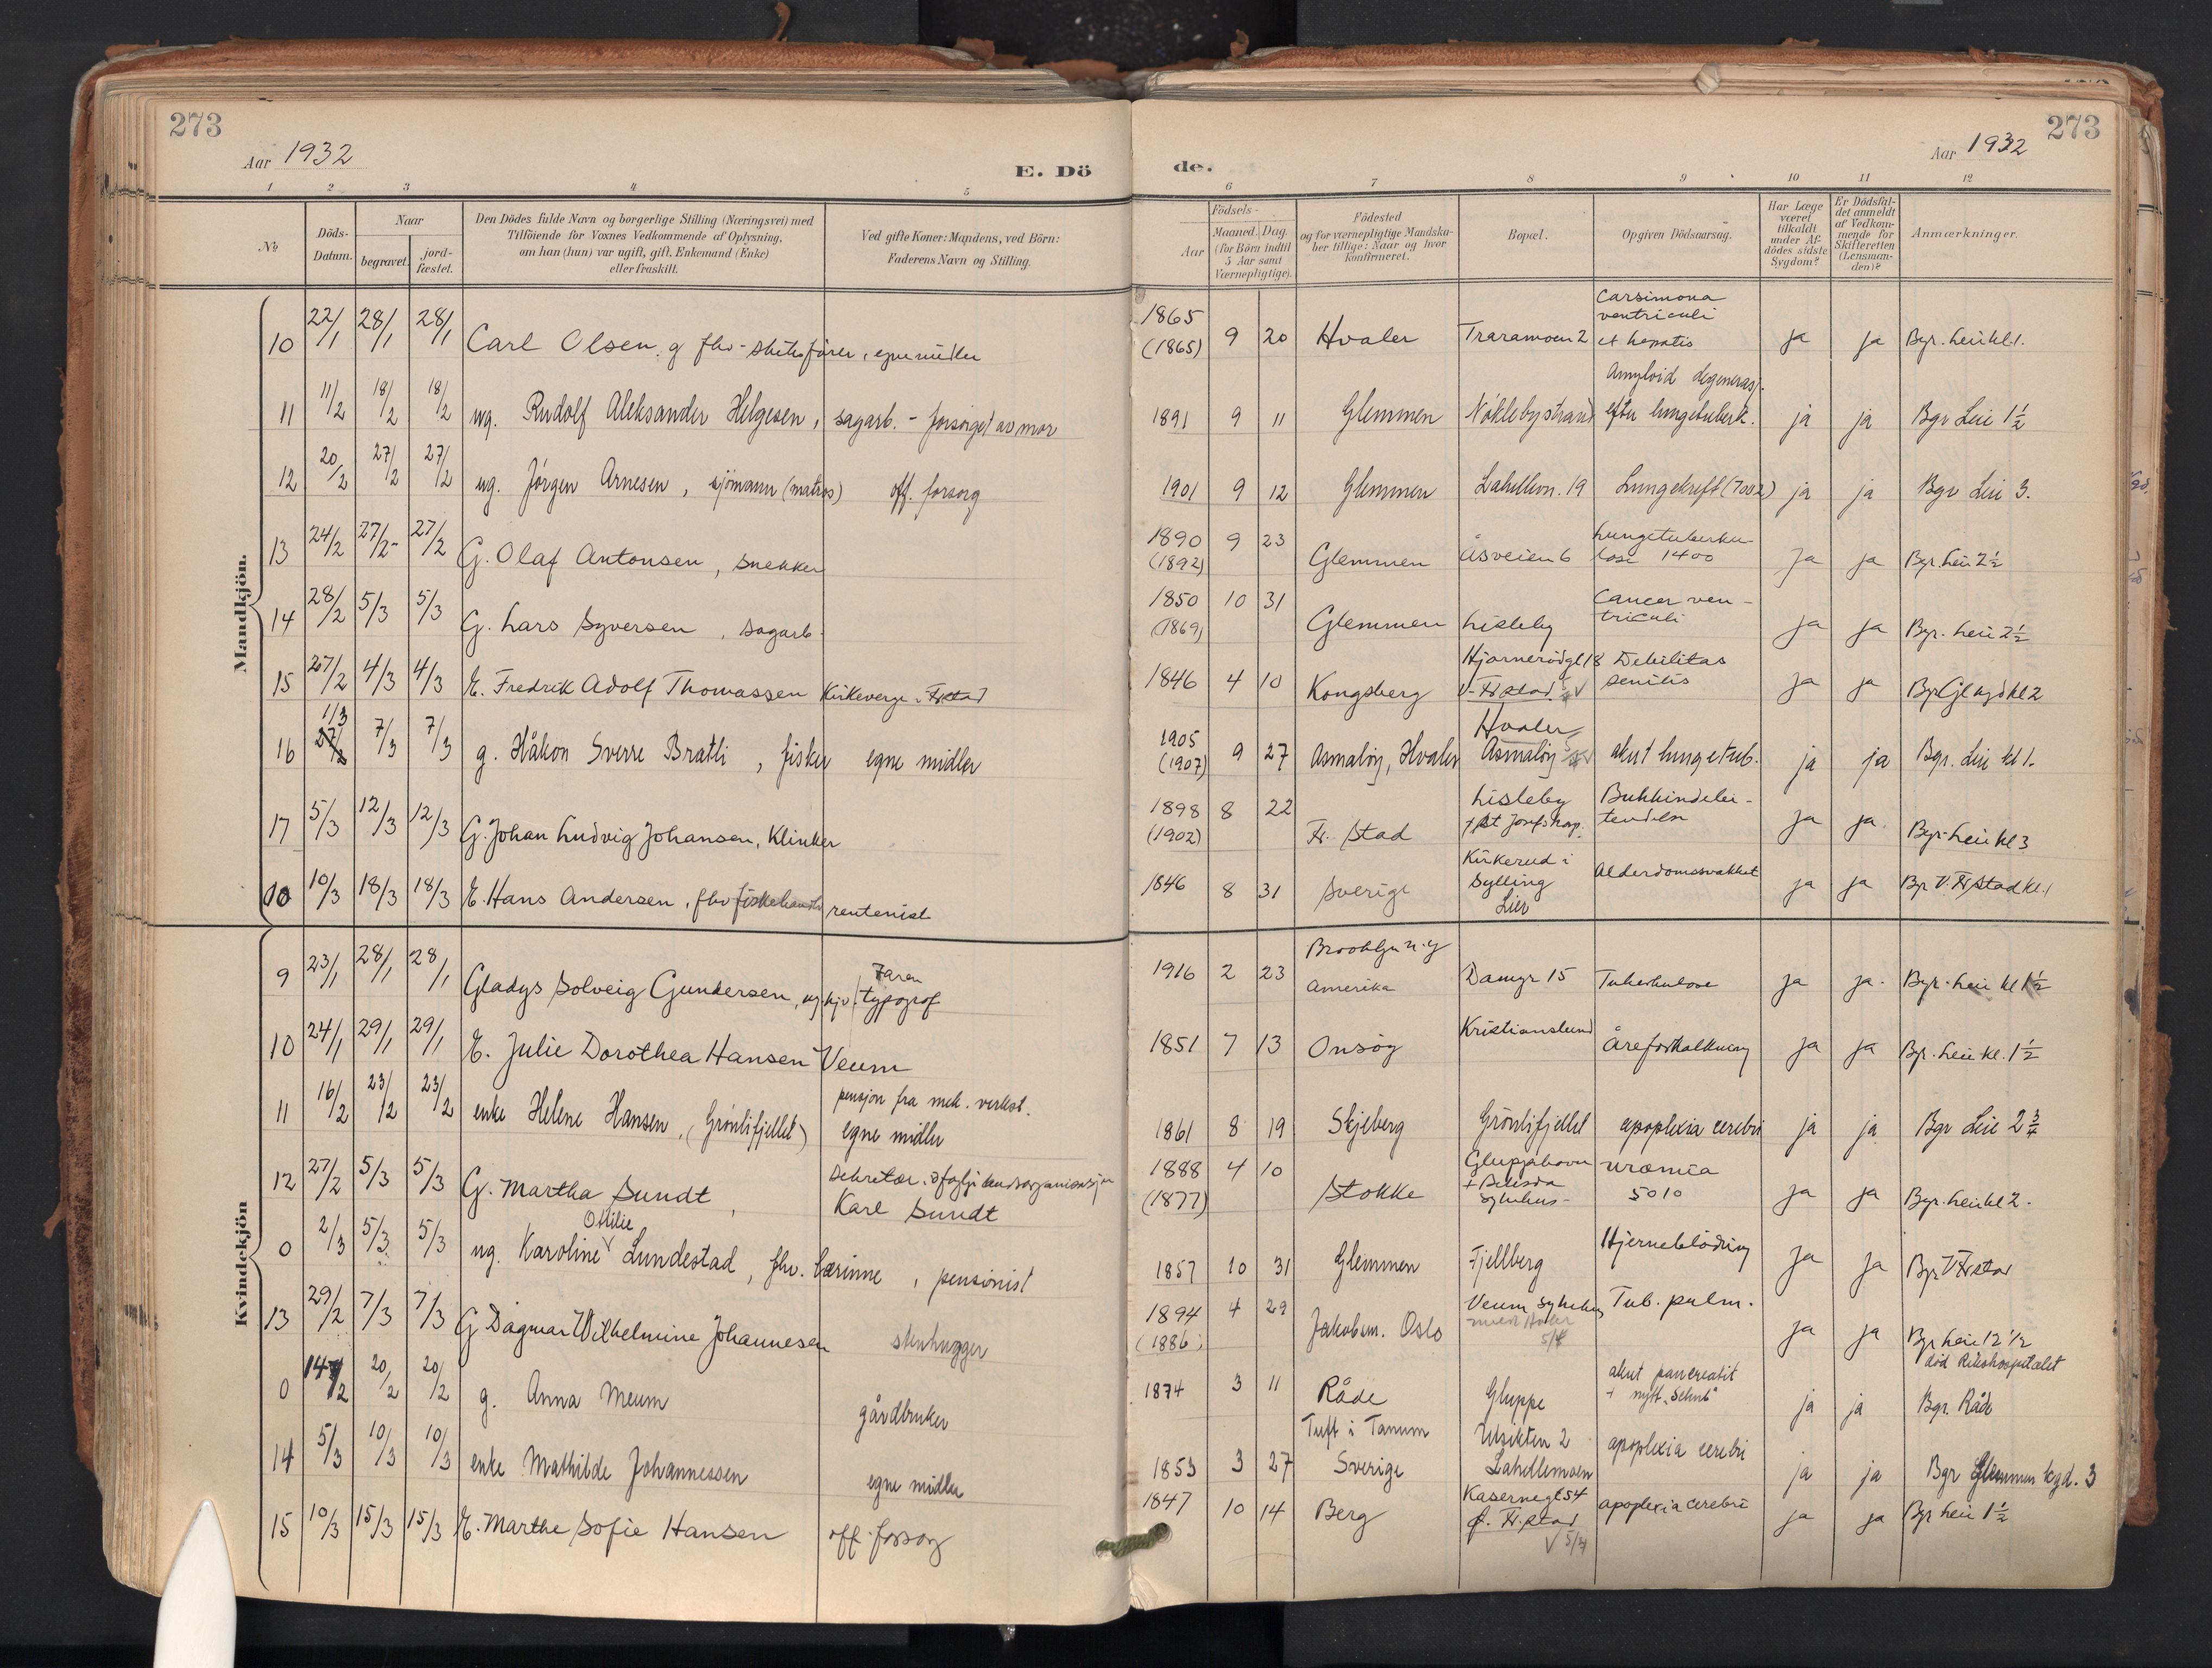 273
Aar 1932
E. Dö
1 2 3 4 5
No
Döds-Datum.
Naar
begravet.
jord-fæstet.
Den Dödes fulde Navn og borgerlige Stilling (Næringsvei) med
Tilföiende for Voxnes Vedkommende af Oplysning,
om han (hun) var ugift, gift, Enkemand (Enke)
eller fraskilt.
Ved gifte Koner: Mandens, ved Börn:
Faderens Navn og Stilling.
Mandkjön.
10 22/1 28/1 28/1 Carl Olsen. g fhv- , egne midler
11 11/2 18/2 18/2 ug. Rudolf Aleksander Helgesen, sagarb. - forsörget av mor
12 20/2 27/2 27/2 ug. Jörgen Arnesen, sjömann (matros) off. forsorg
13 24/2 27/2- 27/2 G. Olaf Antonsen, snekker
14 28/2 5/3 5/3 G. Lars Syversen, sagarb.
15 27/2 4/3 4/3 E. Fredrik Adolf Thomassen Kirkeverge. Fr.stad
16 1/3 27/2 7/3 7/3 g. Håkon Sverre Bratli, fisker egne midler
17 5/3 12/3 12/3 G. Johan Ludvig Johansen, Klinker
10/3 18/3 18/3 E. Hans Andersen, fhv fiskehandler rentenist
Kvindekjön
9 23/1 28/1 28/1 Gladys Solveig Gundersen, ug. hjv. Faren
typograf
10 24/1 29/1 29/1 E. Julie Dorothea Hansen Veum
11 16/2 23/2 23/2 enke Helene Hansen, (Grönlifjellet) pensjon fra mek. verkst.
egne midler
12 27/2 5/3 5/3 G. Martha Sundt,
Karl Sundt
0 2/3 5/3 5/3 ug. Karoline Ottilie Lundestad, fhv. lærinne, pensionist
13 29/2 7/3 7/3 G Dagmar Wilhelmine Johannesen stenhugger
0 14/2 20/2 20/2 g. Anna Meum gårdbruker
14 5/3 10/3 10/3 enke Mathilde Johannessen egne midler
15 10/3 15/3 15/3 E. Marthe Sofie Hansen off. forsorg
de.
Aar 1932
273
6 7 8 9 10 11 12
Födsels-
Aar
Maaned. Dag.
(for Börn indtil
5 Aar samt
Værnepligtige).
Födested
og for værnepligtige Mandska-
ber tillige: Naar og hvor
konfirmeret.
Bopæl.
Opgiven Dödsaarsag.
Har Læge
været
tilkaldt
under Af-
dödes sidste
Sygdom?
Er Dödsfal-
det anmeldt
af Vedkom-
mende for
Skifteretten
(Lensman-
den)?
Anmærkninger.
1865 (1865) 9 20 Hvaler Traramoen 2 Carsimona
ventriculi
et hepatis ja ja Bgr. Leie kl 1.
1891 9 11 Glemmen Nöklebystrand Amyloid degenerasj.
efter lungetuberk. ja ja Bgr Leie 1 1/2
1901 9 12 Glemmen Lahellem. 19 ja ja Bgr Leie 3.
1890 (1892) 9 23 Glemmen Åsveien 6 Lungetuberku
lose 1400 ja ja Bgr. Leie 2 1/2
1850 (1869) 10 31 Glemmen Lisleby Cancer ven-
triculi ja ja Bgr. Leie 2 1/2
1846 4 10 Kongsberg Hjörnerödgt 18
V. Fr.stad Debilitas
senilis ja ja Bgr Gl kgd kl 2
1905 (1907) 9 27 Asmalöy, Hvaler Hvaler
Asmalöy akut lungetub. ja ja Bgr. Leie kl 1.
1898 (1902) 8 22 Fr. stad Lisleby Bukhindebe-
tendelse ja ja. Bgr. Leie kl 3
1846 8 31 Sverige Kirkerud i
Sylling
Lier Alderdomssvakhet ja ja Bgr V. Fr.stad kl. 1
1916 2 23 Brooklyn N.Y
Amerika Damyr 15 Tuberkulose ja ja. Bgr. Leie kl 1 1/2
1851 7 13 Onsöy Kristianslund Åreforkalkning ja ja Bgr. Leie kl. 1 1/2
1861 8 19 Skjeberg Grönlifjellet apoplexia cerebri ja ja Bgr Leie 2 3/4
1888 (1877) 4 10 Stokke
sykehus- uræmia
5010 ja ja Bgr. Leie kl 2.
1857 10 31 Glemmen Fjellberg Hjerneblödning ja ja Bgr V Fr.stad
1894 (1886) 4 29 Jakobsm. Oslo Veum sykehus
5/4 Tub. pulm. ja ja Bgr Leie 12 1/2
1874 3 11 Råde Gluppe akut pancreatit ja ja död Rikshospitalet
Bgr. Råde
1853 3 27 Tuft i Tanum
Sverige Utsikten 2
Lahellemoen apoplexia cerebri ja ja Bgr Glemmen kgd. 3
1847 10 14 Berg Kasernegt 54
Ö. Fr.stad
5/4 apoplexia cerebri ja ja Bgr Leie 1 1/2